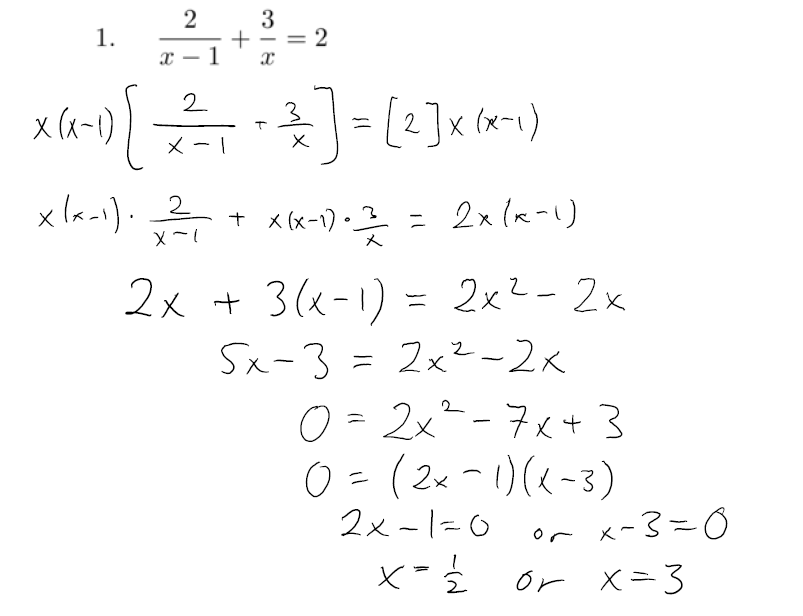 1. 2/(x − 1) + 3/x = 2
x(x-1)[2/(x-1) + 3/x] = [2]x(x-1)
x(x-1) · 2/(x-1) + x(x-1) · 3/x = 2x(x-1)
2x + 3(x-1) = 2x² - 2x
5x - 3 = 2x² - 2x
0 = 2x² - 7x + 3
0 = (2x - 1)(x-3)
2x - 1 = 0 or x-3 = 0
x = 1/2 or x = 3